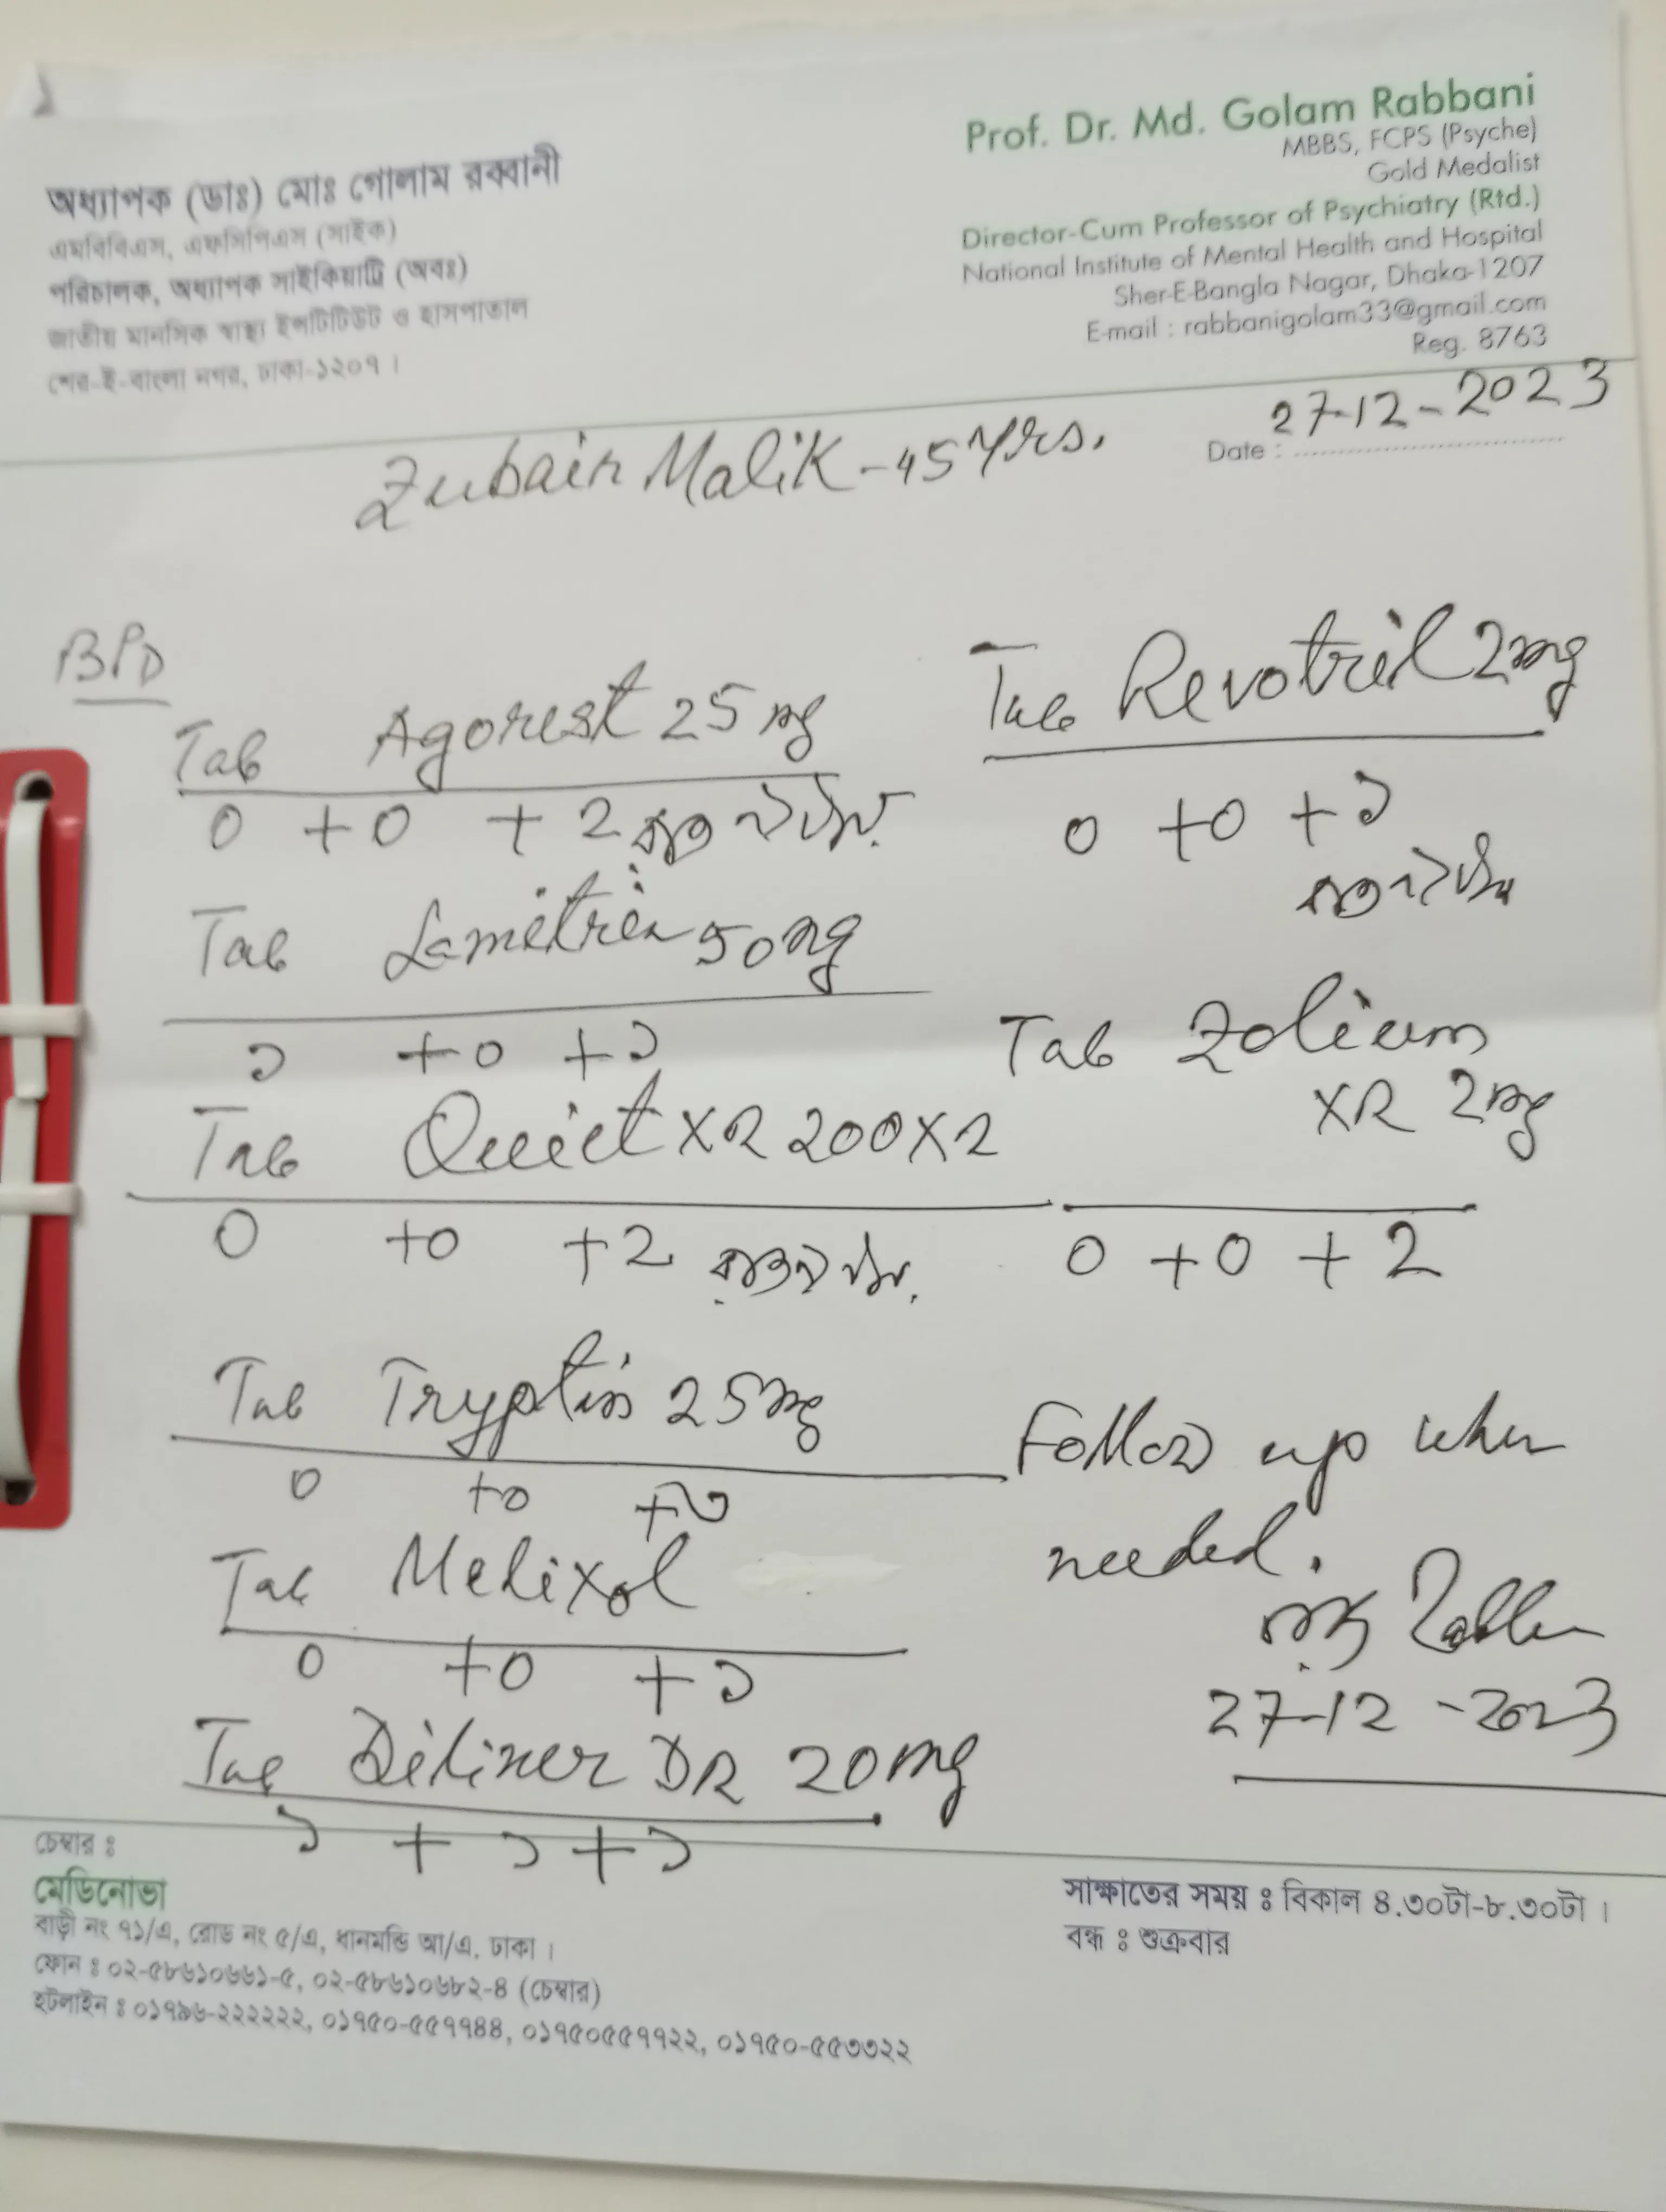 অধ্যাপক (ডাঃ) মোঃ গোলাম রব্বানী
এমবিবিএস, এফসিপিএস (সাইক)
পরিচালক, অধ্যাপক সাইকিয়াট্রি (অবঃ)
জাতীয় মানসিক স্বাস্থ্য ইন্সটিটিউট ও হাসপাতাল
শের-ই-বাংলা নগর, ঢাকা-১২০৭।
Prof. Dr. Md. Golam Rabbani
MBBS, FCPS (Psyche)
Gold Medalist
Director-Cum Professor of Psychiatry (Rtd.)
National Institute of Mental Health and Hospital
Sher-E-Bangla Nagar, Dhaka-1207
E-mail : rabbanigolam33@gmail.com
Reg. 8763
Date : 27-12-2023
Zubair Malik - 45 Yrs.
BPD
Tab Agorest 25 mg
0 + 0 + 2
Tab Lamitrin 50mg
১ + 0 + ১
Tab Quiet XR 200 X 2
0 + 0 + 2
Tab Tryptin 25mg
0 + 0 + ৩
Tab Melixol
0 + 0 + ১
Tab Diliner DR 20mg
১ + ১ + ১
Tab Revotril 2mg
0 + 0 + ১
Tab Zolium
XR 2mg
0 + 0 + 2
Follow up when
needed.
27-12-2023
চেম্বার ঃ
মেডিনোভা
বাড়ী নং ৭১/এ, রোড নং ৫/এ, ধানমন্ডি আ/এ, ঢাকা।
ফোন ঃ ০২-৫৮৬১০৬৬১-৫, ০২-৫৮৬১০৬৮২-৪ (চেম্বার)
হটলাইন ঃ ০১৭৯৬-২২২২২২, ০১৭৫০-৫৫৭৭৪৪, ০১৭৫০৫৫৭৭২২, ০১৭৫০-৫৫৩৩২২
সাক্ষাতের সময় ঃ বিকাল ৪.৩০টা-৮.৩০টা।
বন্ধ ঃ শুক্রবার